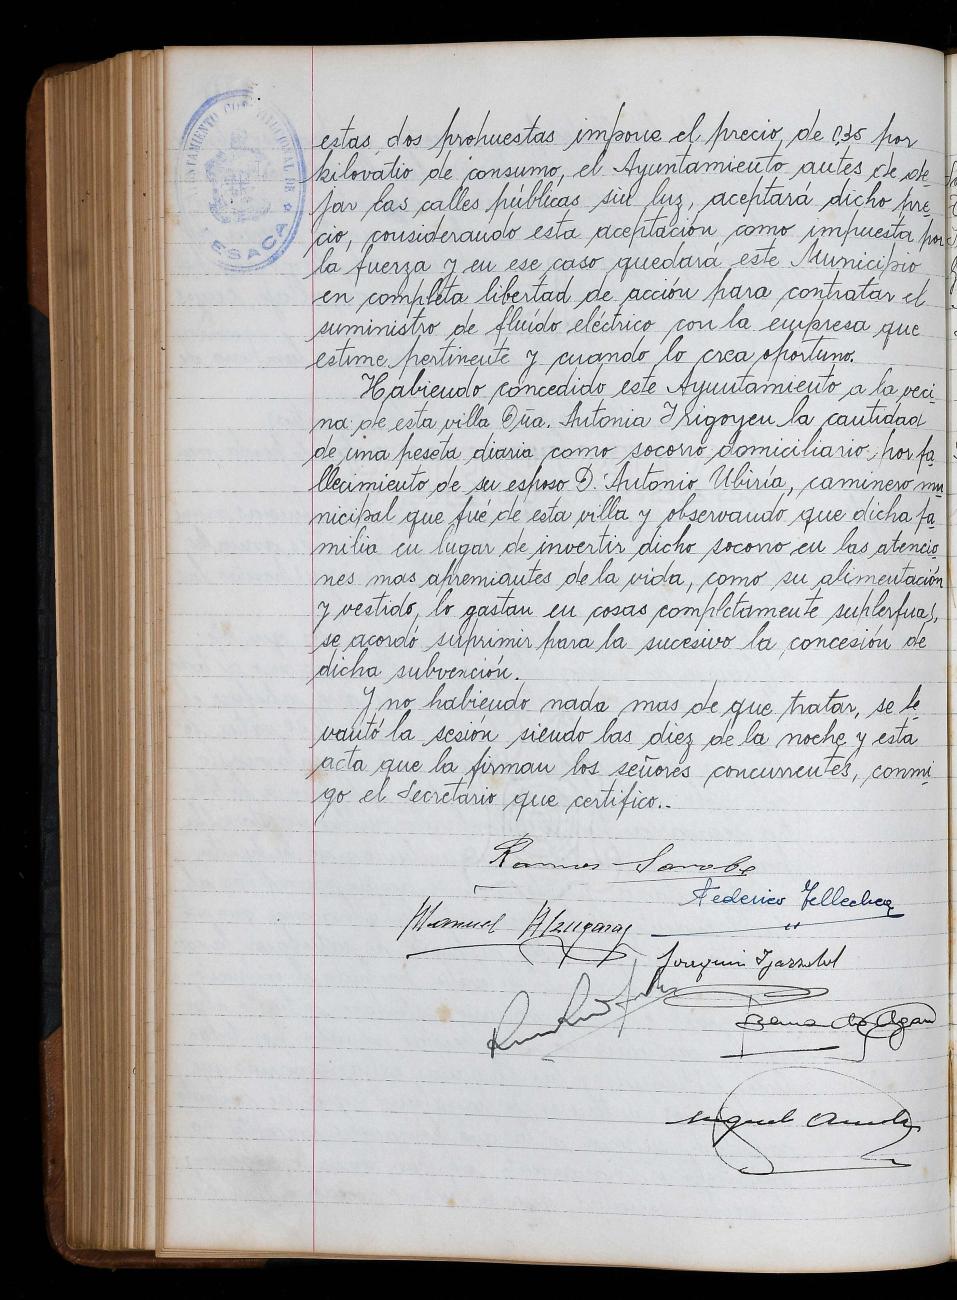 AYUNTAMIENTO CONSTITUCIONAL DE
LESACA
estas dos propuestas impone el precio de 0,35 por
kilovatio de consumo, el Ayuntamiento antes de de-
jar las calles públicas sin luz, aceptará dicho pre-
cio, considerando esta aceptación, como impuesta por
la fuerza y en ese caso quedara este Municipio
en completa libertad de acción para contratar el
suministro de flúido eléctrico con la empresa que
estime pertinente y cuando lo crea oportuno.
Habiendo concedido este Ayuntamiento a la veci-
na de esta villa Dña. Antonia Irigoyen la cantidad
de una peseta diaria como socorro domiciliario, por fa-
llecimiento de su esposo D. Antonio Ubiría, caminero mu-
nicipal que fué de esta villa y observando que dicha fa-
milia en lugar de invertir dicho socorro en las atencio-
nes mas apremiantes de la vida, como su alimentación
y vestido, lo gastan en cosas completamente suplerfuas,
se acordó suprimir para la sucesivo la concesión de
dicha subvención.
Y no habiendo nada mas de que tratar, se le-
vantó la sesión siendo las diez de la noche y esta
acta que la firman los señores concurrentes, conmi-
go el Secretario que certifico..
Ramon Sarobe
Federico Tellechea
Manuel Alzugaray
Joaquin
Miguel